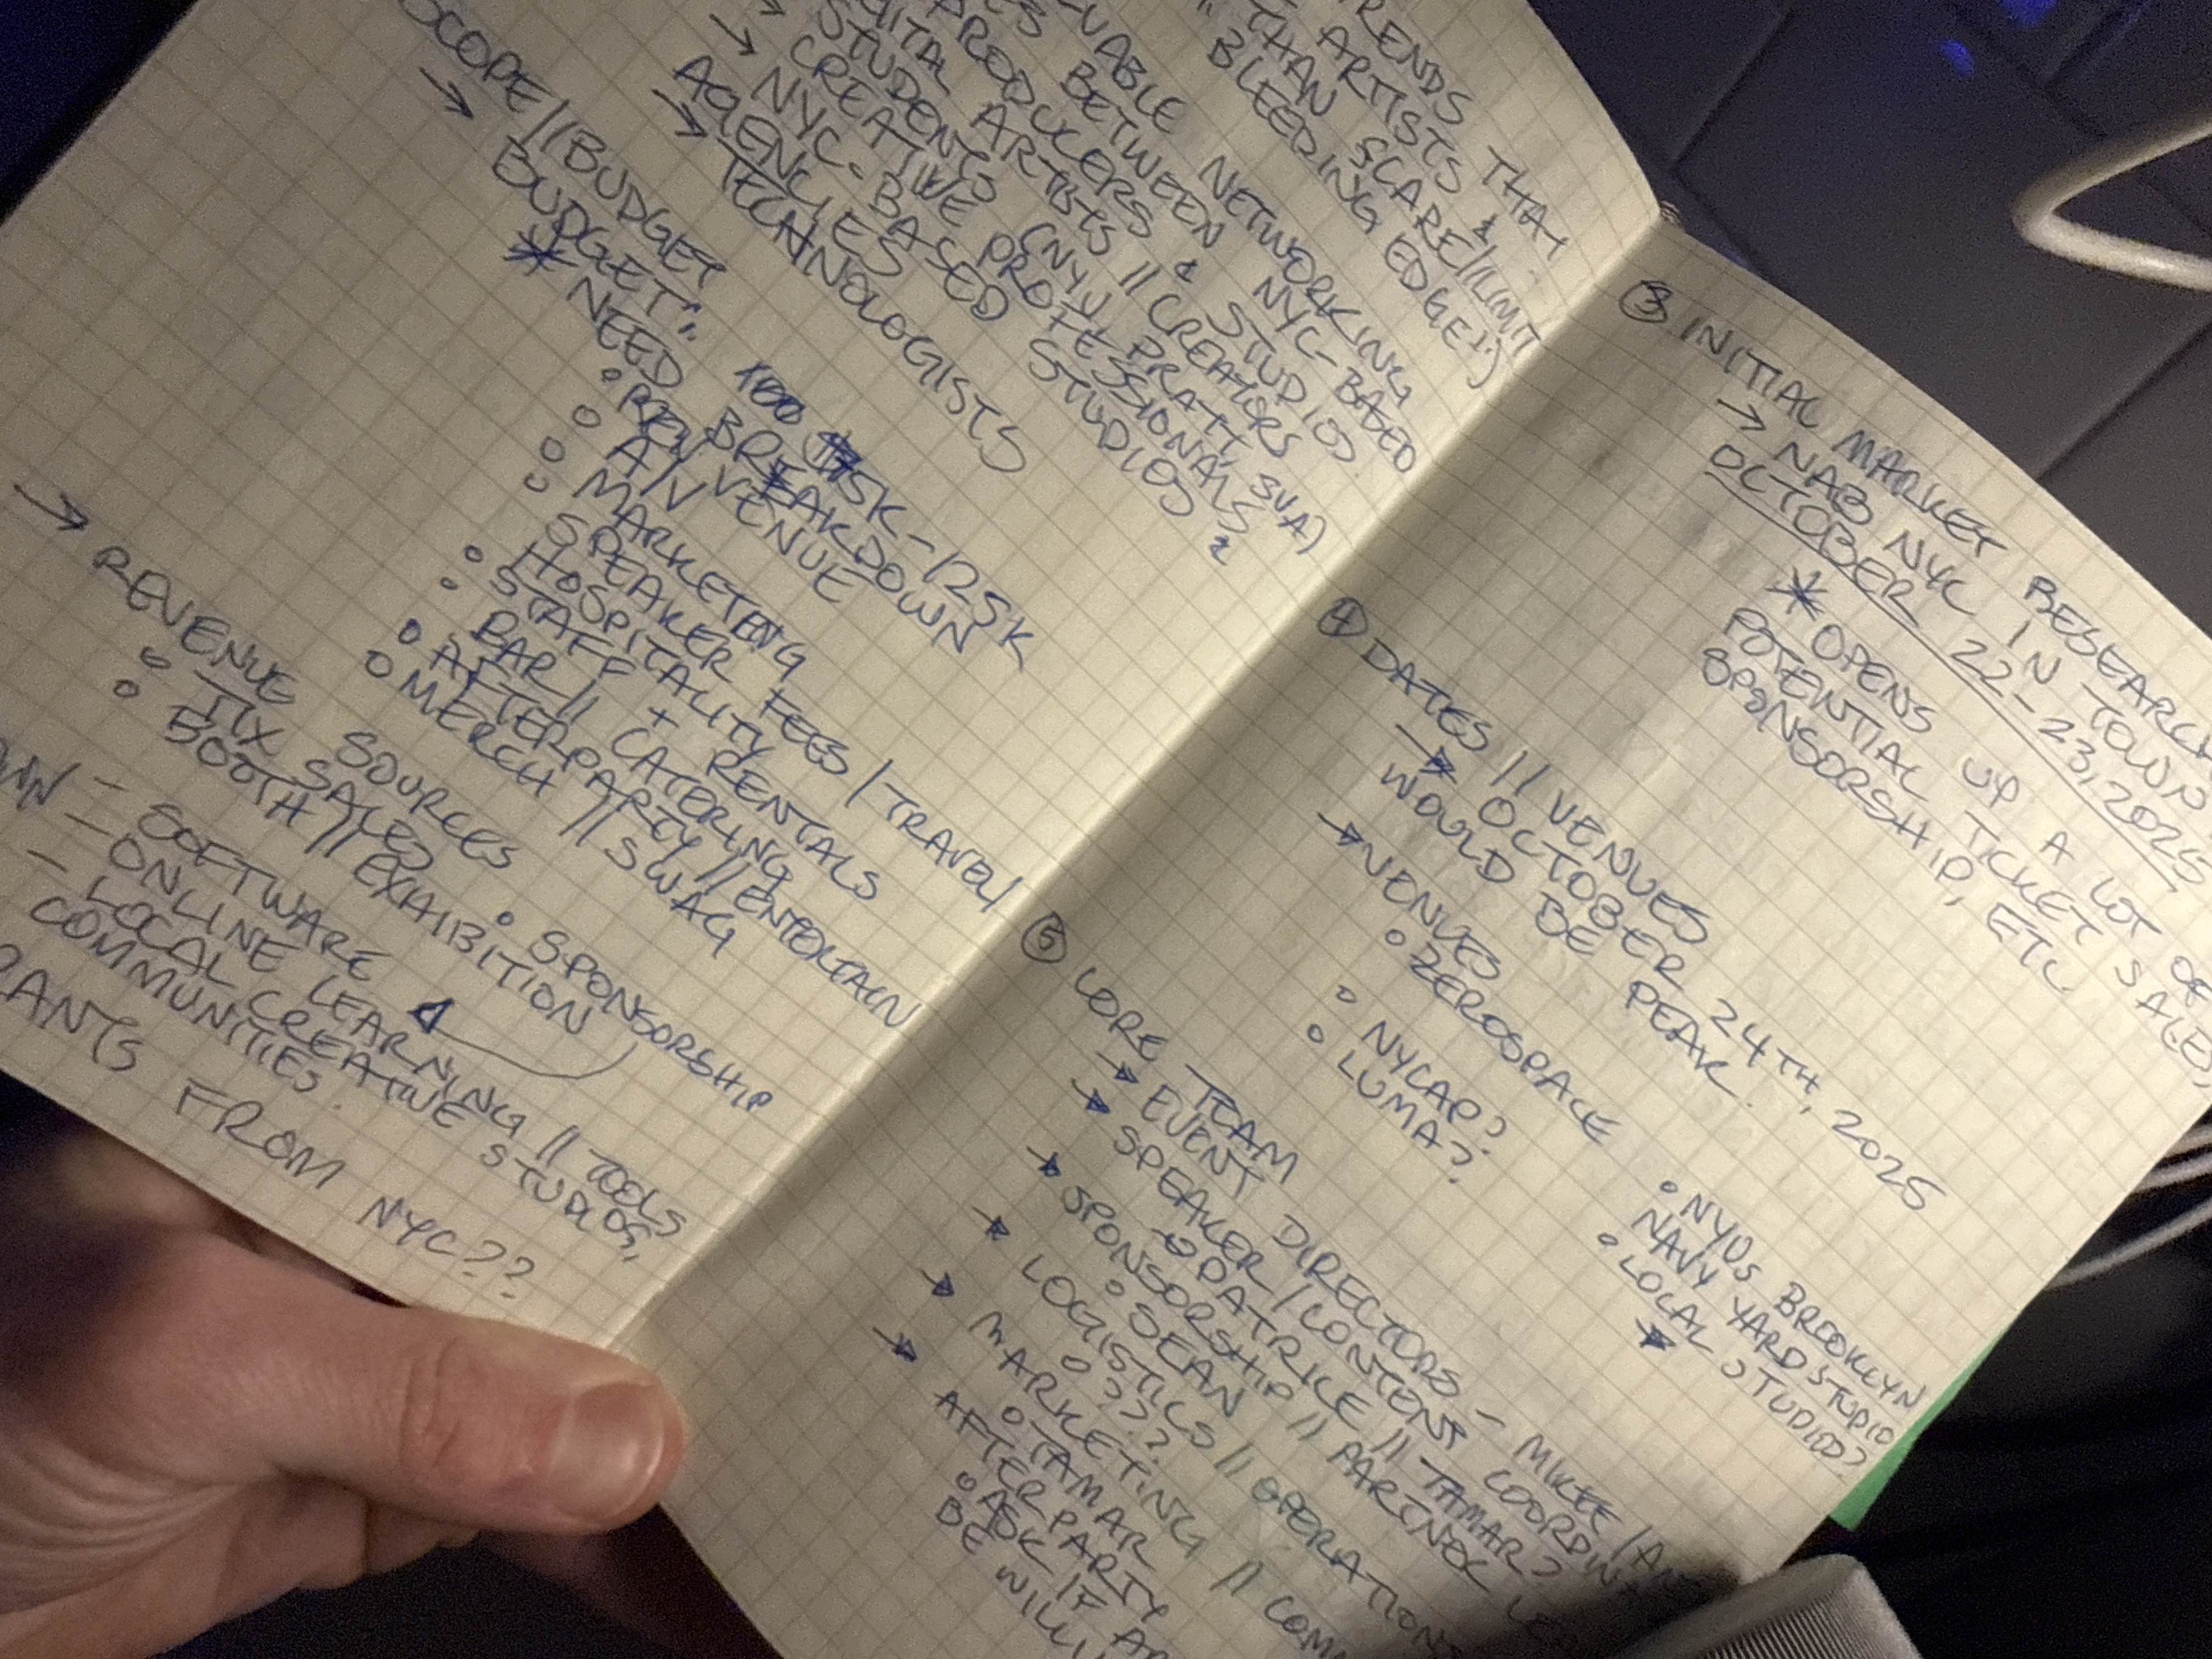 TRENDS
ARTISTS THAT
THAN SCARE//LIMIT
BLEEDING EDGE!")
NETWORKING
BETWEEN NYC-BASED
PRODUCERS & STUDIOS
DIGITAL ARTISTS // CREATORS
STUDENTS (NYU, PRATT, SVA)
→ CREATIVE PROFESSIONALS &
→ NYC-BASED STUDIOS &
AGENCIES
→ TECHNOLOGISTS
SCOPE//BUDGET
→ BUDGET:
- 125K
* NEED BREAKDOWN
◦ VENUE
◦ A/V
◦ MARKETING
◦ SPEAKER FEES/TRAVEL/
HOSPITALITY
◦ STAFF + RENTALS
◦ BAR// CATERING
◦ AFTERPARTY//
◦ MERCH //SWAG
→ REVENUE SOURCES
◦ TIX SALES
◦ SPONSORSHIP
◦ BOOTH//EXHIBITION
- SOFTWARE
- ONLINE LEARNING // TOOLS
- LOCAL CREATIVE STUDIOS,
COMMUNITIES.
FROM NYC??
③ INITIAL MARKET RESEARCH
→ NAB NYC IN TOWN
OCTOBER 22-23, 2025
* OPENS UP A LOT OF
POTENTIAL TICKET SALES,
SPONSORSHIP, ETC.
④ DATES // VENUES
→ OCTOBER 24TH, 2025
WOULD BE PEAK.
→ VENUES
◦ ZEROSPACE
◦ NYU'S BROOKLYN
NAVY YARD STUDIO
◦ NYCAP?
◦ LOCAL STUDIO?
◦ LUMA?
⑤ CORE TEAM
→ EVENT DIRECTORS - MIKEE/
→ SPEAKER/CONTENT
◦ PATRICE // TAMAR?
→ SPONSORSHIP // PARTNER
◦ SEAN
→ LOGISTICS // OPERATIONS
◦ ???
→ MARKETING //
◦ TAMAR
→ AFTERPARTY
◦ ASK IF
BE